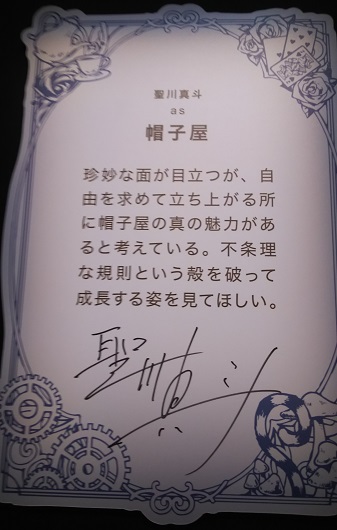 聖川真斗
as
帽子屋
珍妙な面が目立つが、自
由を求めて立ち上がる所
に帽子屋の真の魅力があ
ると考えている。不条理
な規則という殻を破って
成長する姿を見てほしい。
聖川真斗